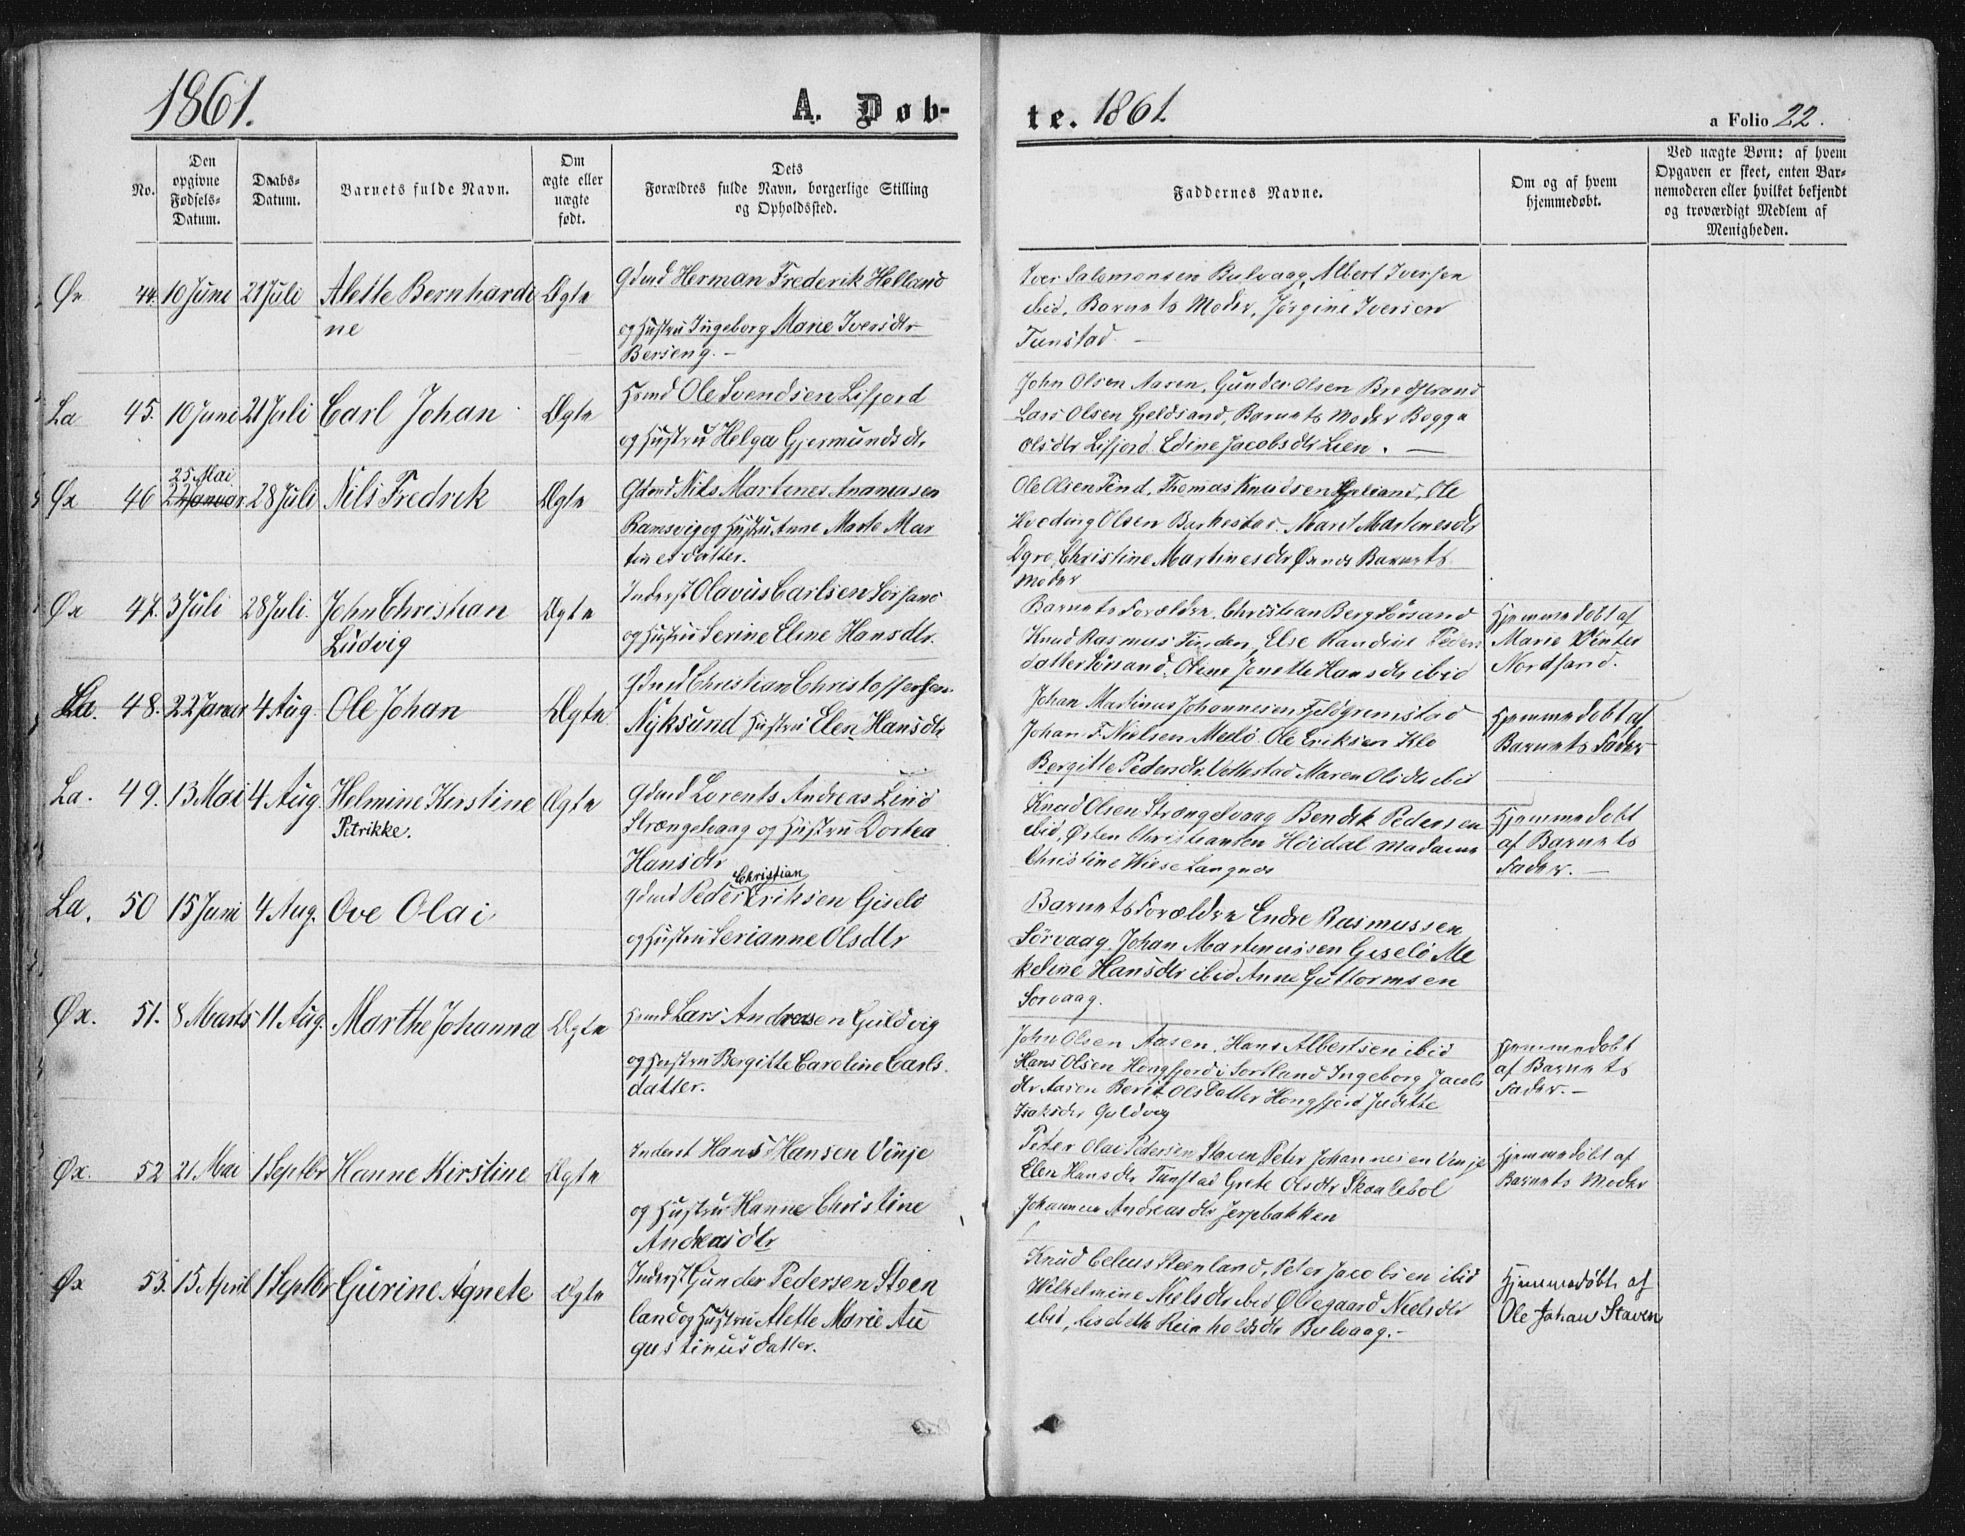 1861.
A. Døb-
te. 1861
a Folio 22.
No.
Den opgivne Fødsels-Datum.
Daabs-Datum.
Barnets fulde Navn.
Om ægte eller uægte født.
Dets Forældres fulde Navn, borgerlige Stilling og Opholdssted.
Faddernes Navne.
Om og af hvem hjemmedøbt.
Ved uægte Børn: af hvem Opgaven er skeet, enten Barnemoderen eller hvilket bekjendt og troværdigt Medlem af Menigheden.
Øx 44. 10 Juni 21 Juli Alette Bernhardi Ægte Gdmd Herman Frederik Holland
ne og Hustru Ingeborg Marie Iversdtr
Berseng. -
Iver Salomonsen Bulvaag, Albert Iversen
ibid, Barnets Moder, Jørgine Iversen
Tunstad. -
La 45. 10 Juni 21 Juli Carl Johan Ægte Hmd Ole Svendsen Lifjord
og Hustru Helga Gjermundsdtr
John Olsen Aasen, Gunder Olsen Bredstrand
Lars Olsen Fjeldsand, Barnets Moder Begga
Olsdtr Lifjord. Edine Jacobsdtr Lien. -
25 Mai
Øx 46 22 Januar 28 Juli Nils Fredrik Ægte Gdmd Nils Martenes Ananiasen
Ramsvig og Hustru Anne Marte Mar
tinesdatter.
Ole Olsen Tind, Thomas Knudsen Ole
Hveding Olsen Barkestad. Marit Martinesdtr
Christine Martinesdtr Øxnes Barnets
Moder
Øx 47. 3 Juli 28 Juli. John Christian Ægte Inderst Olavus Carlsen Sørsand
Ludvig og Hustru Serine Eline Hansdtr.
Barnets Forældre. Christian Berg Sørsand
Knud Rasmus Tinden, Else Randine Peders
datter Sørsand. Oline Jenette Hansdtr ibid
Hjemmedøbt af
Marie Winter
Nordsand.
La. 48. 22 Januar 4 Aug. Ole Johan Ægte Gdmd Christian Christoffersen
Nyksund Hustru Elen Hansdtr
Johan Martinus Johannesen Fjeldgremstad
Johan F. Nielsen Melø. Ole Eriksen Klo
Bergitte Pedersdtr. Vettestad Maren Olsdtr ibid
Hjemmedøbt af
Barnets Fader
La. 49. 13 Mai 4 Aug. Helmine Kirstine Ægte Gdmd Lorents Andreas Lind
Petrikke. Strængelvaag og Hustru Dortea
Hansdtr
Knud Olsen Strængelvaag Bendik Pedersen
ibid, Østen Christiansen Høidal Madame
Christine Wiese Langnes
Hjemmedøbt
af Barnets
Fader. -
Christian
La. 50 15 Juni 4 Aug. Ove Olai Gdmd Peder Eriksen Gislø
og Hustru Serianne Olsdtr
Barnets Forældre Endre Rasmussen
Sørvaag. Johan Martinussen Giselø Me
keline Hansdtr ibid Anne Guttormsen
Sørvaag.
Øx. 51. 8 Marts 11 Aug. Marthe Johanna Ægte Hmd Lars Andreasen Guldvig
og Hustru Bergitte Caroline Carls
datter.
John Olsen Aasen, Hans Albertsen ibid
Hans Olsen Hongfjord i Sortland Ingeborg Jacobs
dtr Aasen Berit Olsdatter Hongfjord Juditte
Isaksdtr Guldvig
Hjemmedøbt
af Barnets
Fader. -
Øx. 52 21. Mai 1 Septbr Hanne Kirstine Ægte Inderst Hans Hansen Vinje
og Hustru Hanne Christine
Andreasdtr
Peter Olai Pedersen Staven, Peter Johannesen Vinje
Elen Hansdtr Tunstad Grete Olsdtr Skoglebol
Johanna Andreasdtr Jerpbakken
Hjemmedøbt af
Barnets Moder
Øx 53. 15. April 1 Septbr Gurine Agnete Ægte Inderst Gunder Pedersen Steen
land og Hustru Alette Marie Au
gustinusdatter.
Knud Celius Steenland, Peter Jacobsen ibid
Wilhelmine Nielsdtr ibid Ølegaard Nielsdtr
ibid, Lisebeth Reinholdsdtr Bulvaag. -
Hjemmedøbt af
Ole Johan Staven